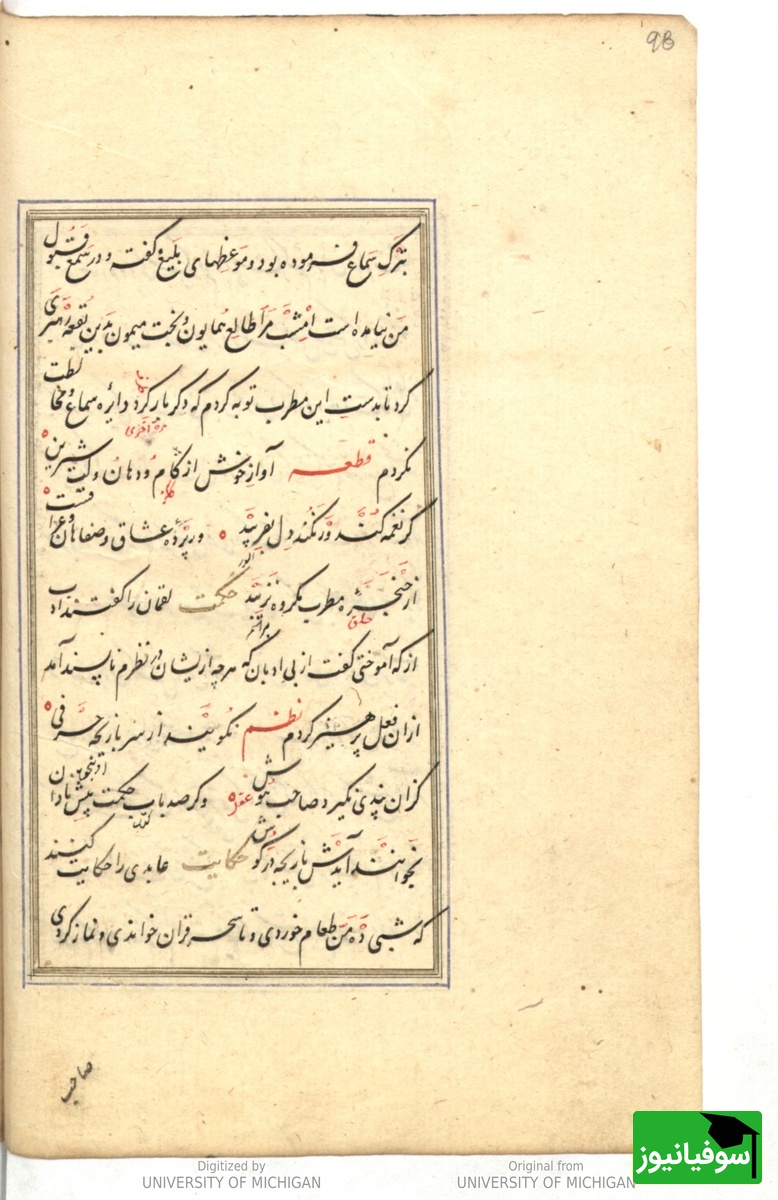 98
بترک سماع فرموده بود و موعظهای بلیغ گفته و در سمع قبول
من نیامده است امشب مرا طالع همایون و بخت میمون بدین بقعه رهبری
کرد تا بدست این مطرب توبه کردم که دکر بار کرد دایره سماع و مخالطت
مرة اخری
نکردم قطعه آواز خوش از کام و دهان و لب شیرین
کر نغمه کند ور نکند دل بفریبد ور پردۀ عشاق و صفاهان و
از حنجرۀ مطرب مکروه نزیبد حکمت لقمان را گفتند ادب
حلق
از که آموختی گفت از بی ادبان که هرچه از ایشان در نظرم ناپسند آمد
ازان فعل پرهیز کردم نظم نکویند از سر بازیچه حرفی
کزان پندی نکیرد صاحب هوش وکر صد باب حکمت پیش نادان
بخوانند آیدش بازیچه در کوش حکایت عابدی را حکایت کنند
که شبی ده من طعام خوردی و تا سحر قران خواندی و نماز کردی
صاحب
سوفیانیوز
Digitized by
UNIVERSITY OF MICHIGAN
Original from
UNIVERSITY OF MICHIGAN